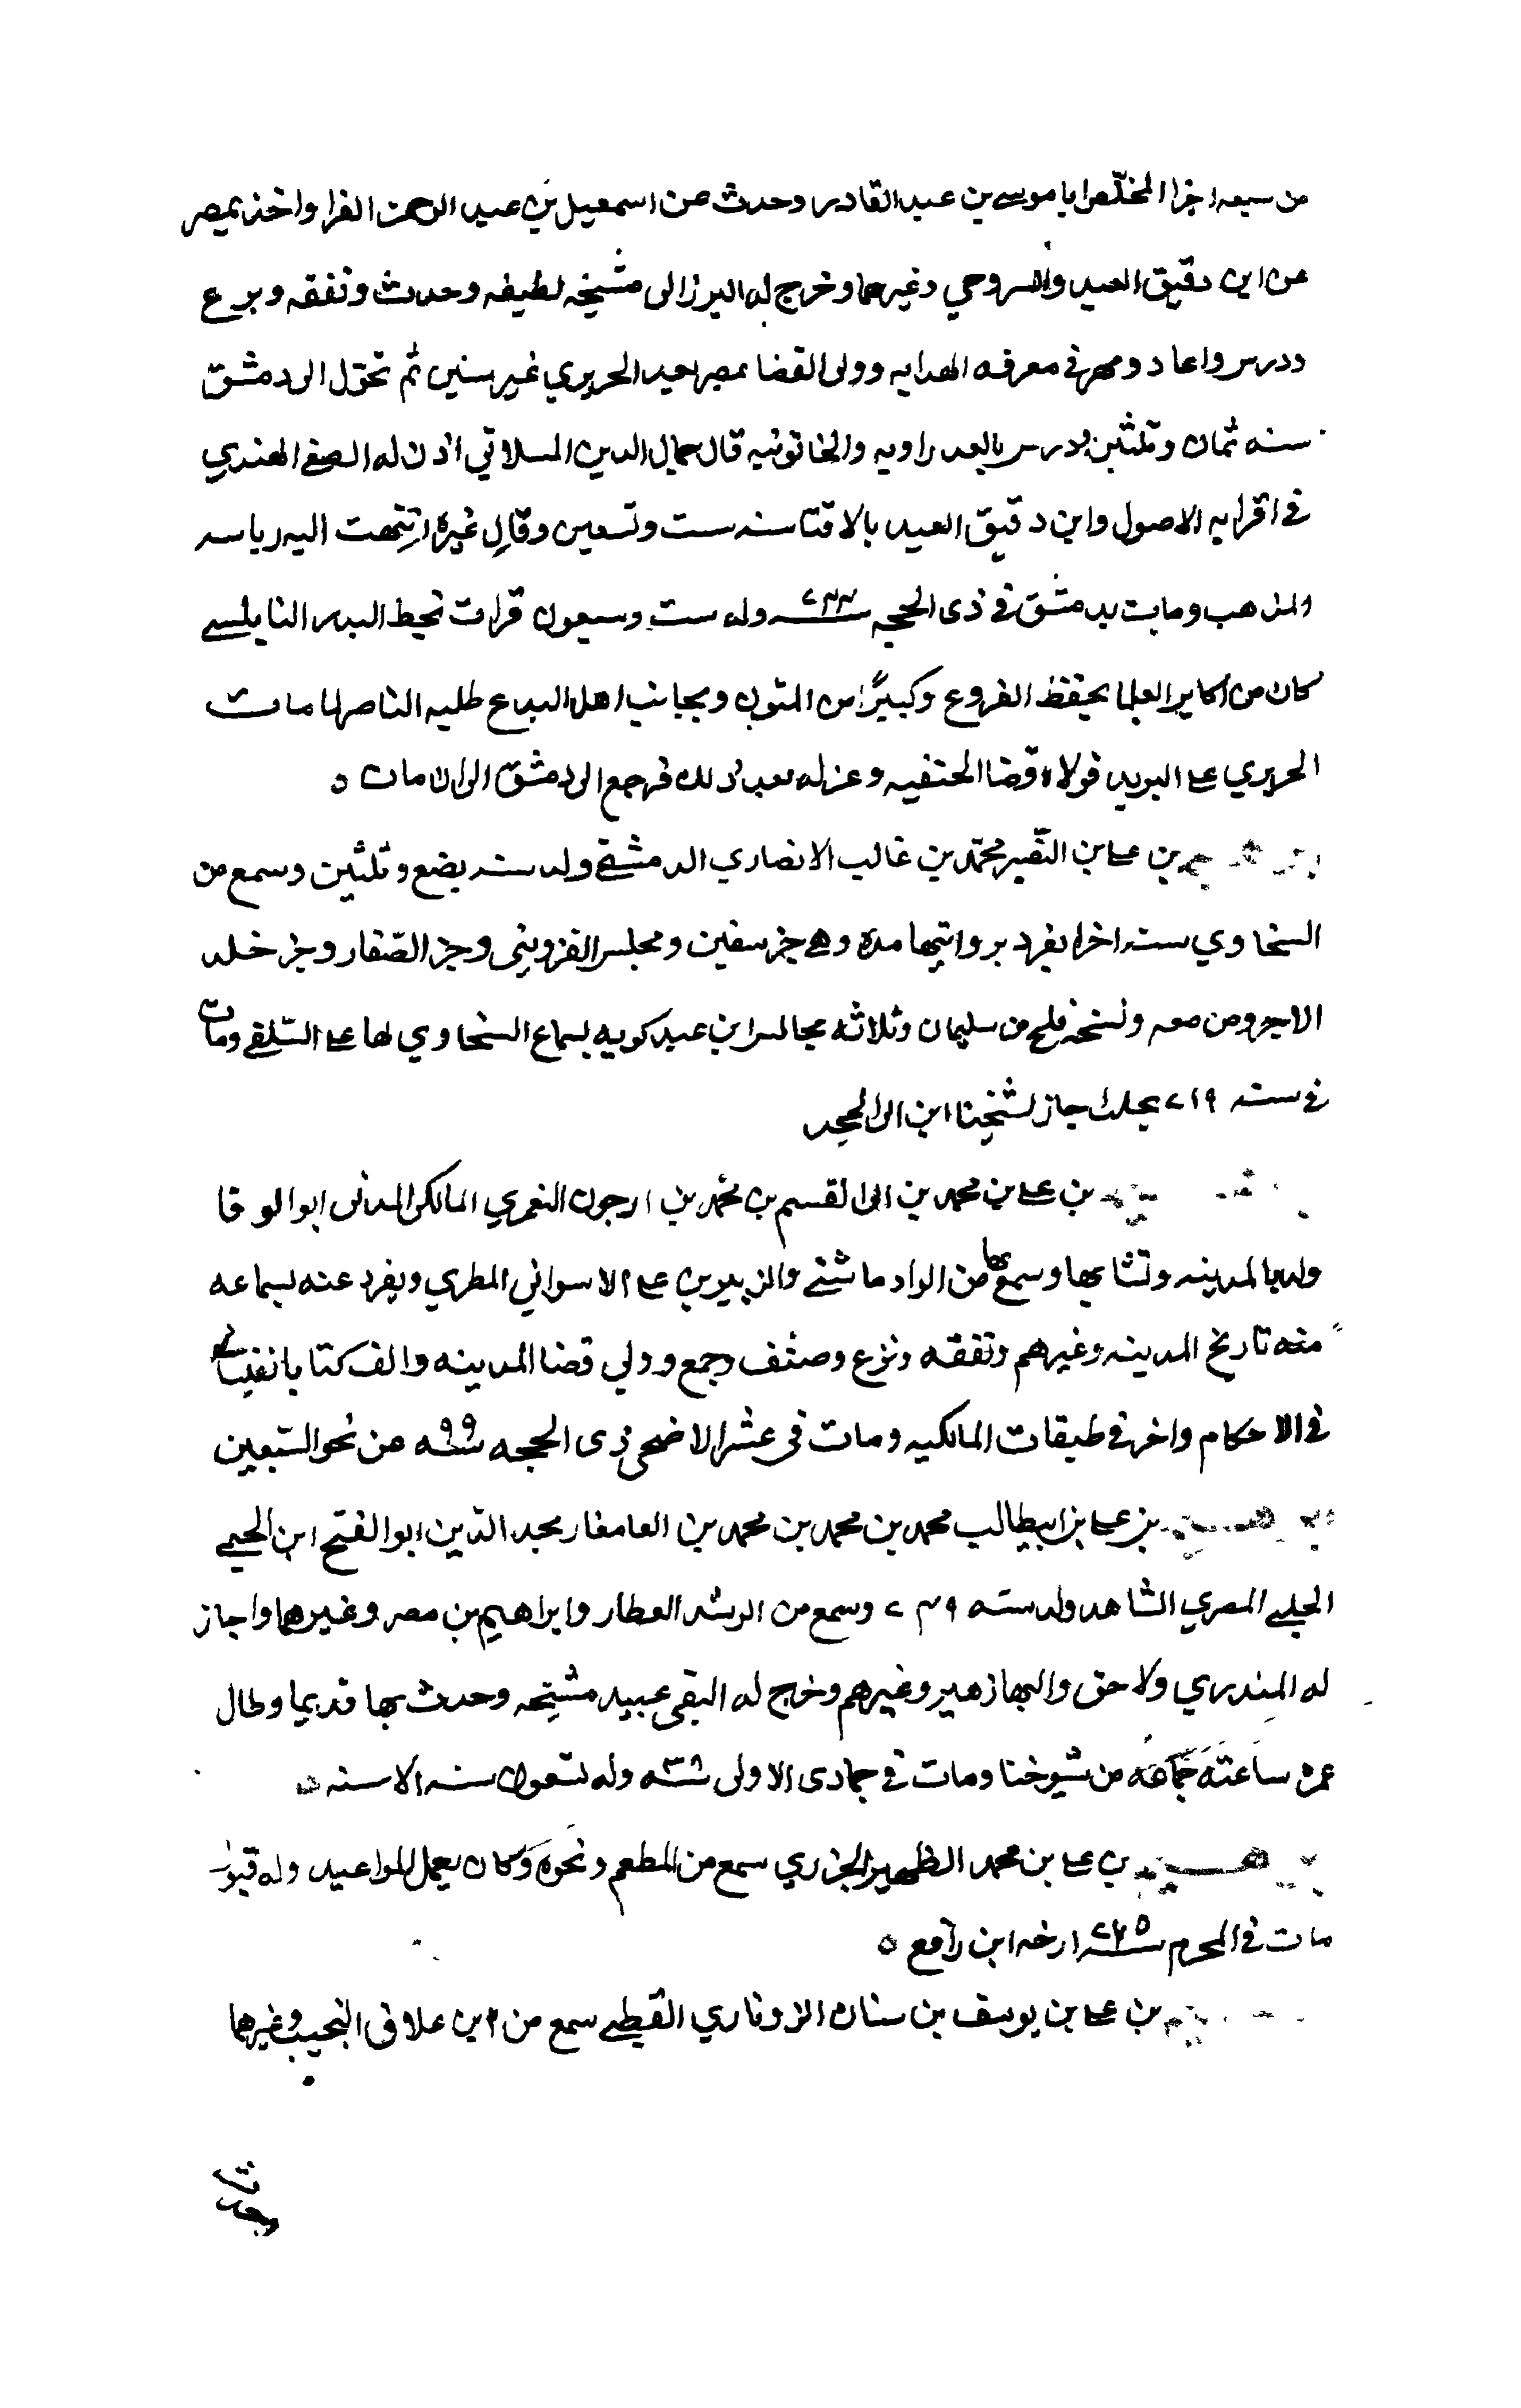 من سبعه اجزا المخلص ابا موسى بن عبد القادر وحدث عن اسمعيل بن عبد الرحمن الفرا واخذ بمصر
عن ابن دقيق العيد والسروجي وغيرهما وخرج له البرزالى مشيخه لطيفه وحدث وتفقه وبرع
ودرس واعاد ومهر في معرفه الهدايه وولى القضا بمصر بعد الحريري عشر سنين ثم تحوّل الى دمشق
سنه ثمان وثلثين ودرس بالعدراويه والخاتونيه قال جمال الدين المسلاتي اذن له الصفي الهندي
في اقرايه الاصول وابن دقيق العيد بالافتا سنه ست وتسعين وقال غيره انتهت اليه رياسه
المذهب ومات بدمشق في ذى الحجه سنه ٧٤٤ وله ست وسبعون قرات بخط البدر النابلسي
كان من اكابر العلما يحفظ الفروع وكبيرًا من المتون ويجانب اهل البدع طلبه الناصر لما مات
الحريري على البريد فولاه قضا الحنفيه وعزله بعد ذلك فرجع الى دمشق الى ان مات ه
بن على بن النصير محمّد بن غالب الانصاري الدمشقي ولد سنه بضع وثلثين وسمع من
السخاوي سته اجزا تفرد بروايتها مده وهي جز سفين ومجلس القزويني وجز الصّفار وجز خلد
الاجر ومن معه ونسخه فليح من سليمان وثلاثه مجالس ابن عبد كويه بسماع السخاوي لها على السّلفي ومات
في سنه ٧١٩ جاز لشيخنا ابن ابى المجد
بن على بن محمد بن ابى القسم بن محمد بن فرحون اليعمري المالكى المدنى ابو الوفا
ولد بالمدينه ونشا بها وسمع بها من الوادماشي والزبير بن على الاسواني المطري وتفرد عنه بسماعه
منه تاريخ المدينه وغيرهم وتفقه وبرع وصنّف وجمع وولي قضا المدينه والف كتابا نفيسا
في الاحكام واخر في طبقات المالكيه ومات فى عشر الاضحى ذى الحجه سنه ٧٩٩ عن نحو السّبعين
بن على بن ابيطالب محمد بن محمد بن محمد بن العامغار مجد الدّين ابو الفتح ابن الحيمي
الحلي المصري الشاهد ولد سنه ٧٤٩ وسمع من الرشد العطار وابراهيم بن مصر وغيرهما واجاز
له المنذري ولاحق والبهازهير وغيرهم وخرج له التقى عبيد مشيخه وحدث بها قديما وطال
عمره جَمَاعَه من شيوخنا ومات في جمادى الاولى سنه ٧٣٨ وله تسعون سنه الا سنه ه
بن على بن محمد الظهير الجزري سمع من المطعم ونحوه وكان يعمل المواعيد وله قبول
مات في المحرم سنه ٧٧٥ ارخه ابن رافع ه
بن على بن يوسف بن سنان الزرزاري القطبي سمع من ابن علاق النجيب وغيرهما
وحدث